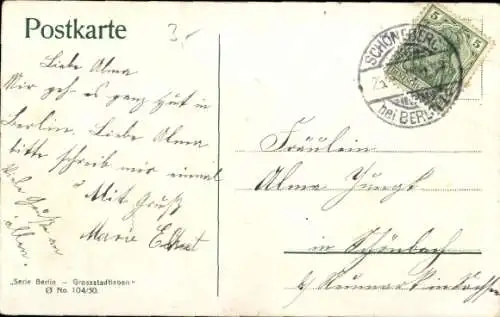 Postkarte
3,-
Liebe Alma
Mir geh- es ganz gut in
Berlin. Liebe Alma
bitte schreib mir einmal
Mit Gruß
Marie
Viele Grüße an
allen.
„Serie Berlin — Grossstadtleben“
No. 104/50.
5 5
SCHÖNEBERG
bei BERLIN
Fräulein
Alma
in Schönbach
b/ Neumark in Sachsen